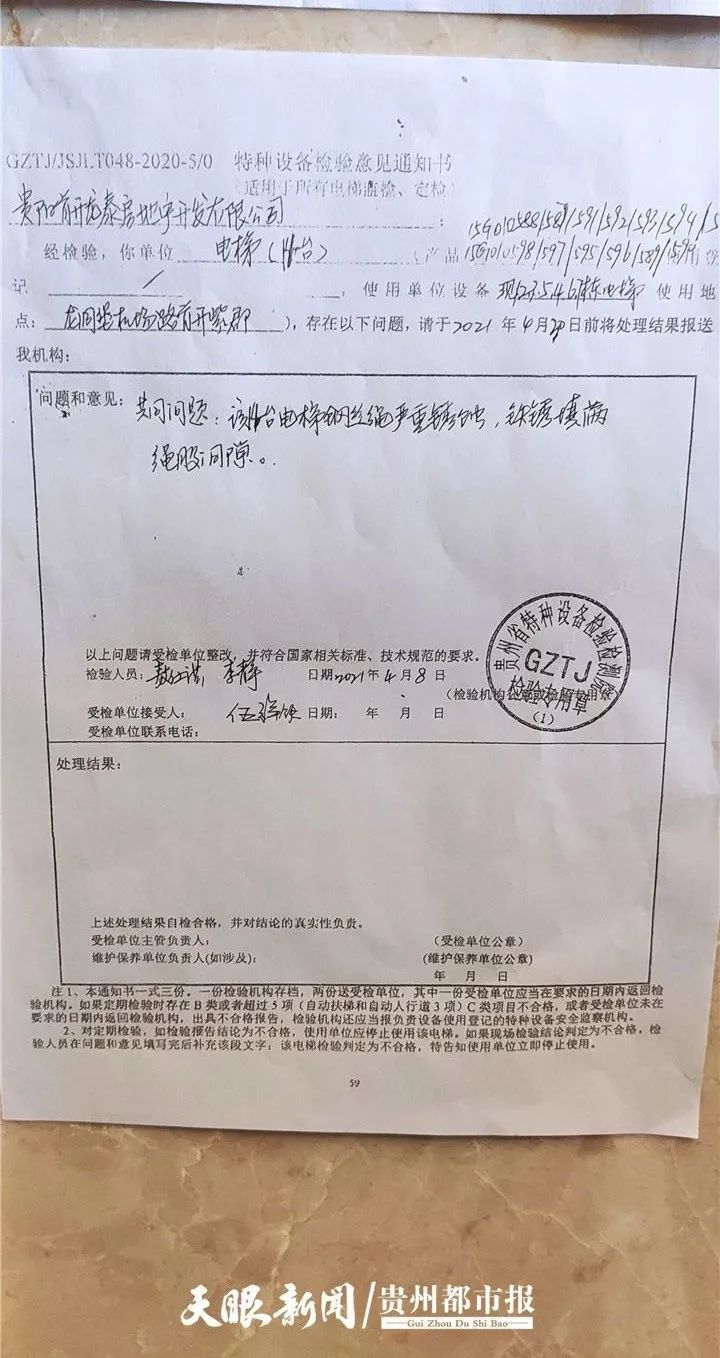 GZTJ/JSJLT048-2020-5/0 特种设备检验意见通知书
(适用于所有电梯监检、定检)
贵阳首开龙泰房地产开发有限公司:
经检验,你单位 电梯( 台) (产品
记 / ,使用单位设备 电梯 使用地
点: 龙洞堡机场路首开紫郡 ),存在以下问题,请于2021年4月 日前将处理结果报送
我机构:
问题和意见: 共同问题:该 台电梯钢丝绳严重锈蚀,铁锈填满
绳股间隙。
以上问题请受检单位整改,并符合国家相关标准、技术规范的要求。
检验人员: 李静 日期2021年4月8日
(检验机构
受检单位接受人: 日期: 年 月 日
受检单位联系电话:
贵州省特种设备检验检测院
GZTJ
检验专用章
(1)
处理结果:
上述处理结果自检合格,并对结论的真实性负责。
受检单位主管负责人: (受检单位公章)
维护保养单位负责人(如涉及): (维护保养单位公章)
年 月 日
注1、本通知书一式三份。一份检验机构存档,两份送受检单位,其中一份受检单位应当在要求的日期内返回检
验机构。如果定期检验时存在B类或者超过5项(自动扶梯和自动人行道3项)C类项目不合格,或者受检单位未在
要求的日期内返回检验机构,出具不合格报告,检验机构还应当报负责设备使用登记的特种设备安全监察机构。
2、对定期检验,如检验报告结论为不合格,使用单位应停止使用该电梯。如果现场检验结论判定为不合格,检
验人员在问题和意见填写完后补充该段文字:该电梯检验判定为不合格,特告知使用单位立即停止使用。
59
天眼新闻/贵州都市报
Gui Zhou Du Shi Bao